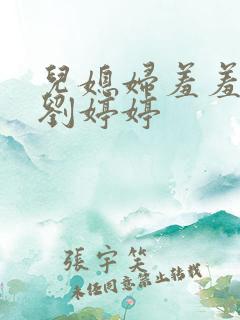 兒媳婦羞羞
劉婷婷
張宇笑
未任同意禁止转载